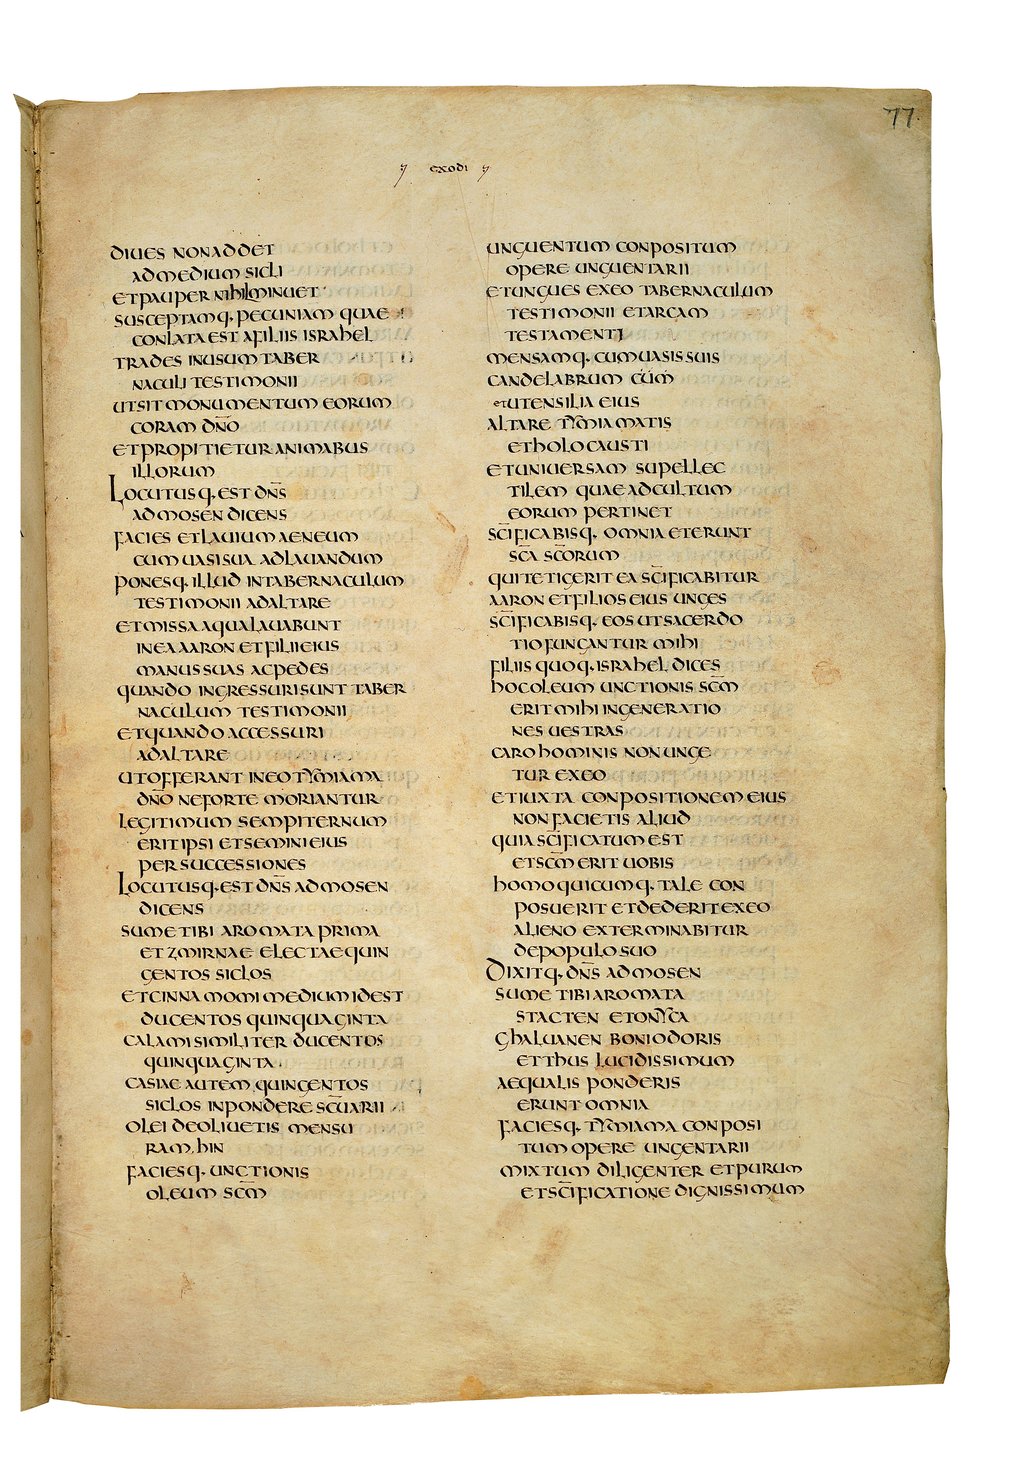 77
exodi
diues non addet
ad medium sicli
et pauper nihil minuet
susceptamq. pecuniam quae
conlata est a filiis israhel
trades in usum taber
naculi testimonii
ut sit monumentum eorum
coram dn̅o
et propitietur animabus
illorum
Locutusq. est dn̅s
ad mosen dicens
facies et lauium aeneum
cum uasi sua ad lauandum
ponesq. illud in tabernaculum
testimonii ad altare
et missa aqua lauabunt
in ea aaron et filii eius
manus suas ac pedes
quando ingressuri sunt taber
naculum testimonii
et quando accessuri
ad altare
ut offerant in eo tymiama
dn̅o ne forte moriantur
legitimum sempiternum
erit ipsi et semini eius
per successiones
Locutusq. est dn̅s ad mosen
dicens
sume tibi aromata prima
et zmirnae electae quin
gentos siclos
et cinnamomi medium id est
ducentos quinquaginta
calami similiter ducentos
quinquaginta
casiae autem quingentos
siclos in pondere sc̅uarii
olei de oliuetis mensu
ram hin
faciesq. unctionis
oleum sc̅m
unguentum conpositum
opere unguentarii
et ungues ex eo tabernaculum
testimonii et arcam
testamenti
mensamq. cum uasis suis
candelabrum cum
et utensilia eius
altare tymiamatis
et holocausti
et uniuersam supellec
tilem quae ad cultum
eorum pertinet
sc̅ificabisq. omnia et erunt
sc̅a sc̅orum
qui tetigerit ea sc̅ificabitur
aaron et filios eius unges
sc̅ificabisq. eos ut sacerdo
tio fungantur mihi
filiis quoq. israhel dices
hoc oleum unctionis sc̅m
erit mihi in generatio
nes uestras
caro hominis non unge
tur ex eo
et iuxta conpositionem eius
non facietis aliud
quia sc̅ificatum est
et sc̅m erit uobis
homo quicumq. tale con
posuerit et dederit ex eo
alieno exterminabitur
de populo suo
Dixitq. dn̅s ad mosen
sume tibi aromata
stacten et onyca
ghaluanen boni odoris
et thus lucidissimum
aequalis ponderis
erunt omnia
faciesq. tymiama conposi
tum opere ungentarii
mixtum diligenter et purum
et sc̅ificatione dignissimum